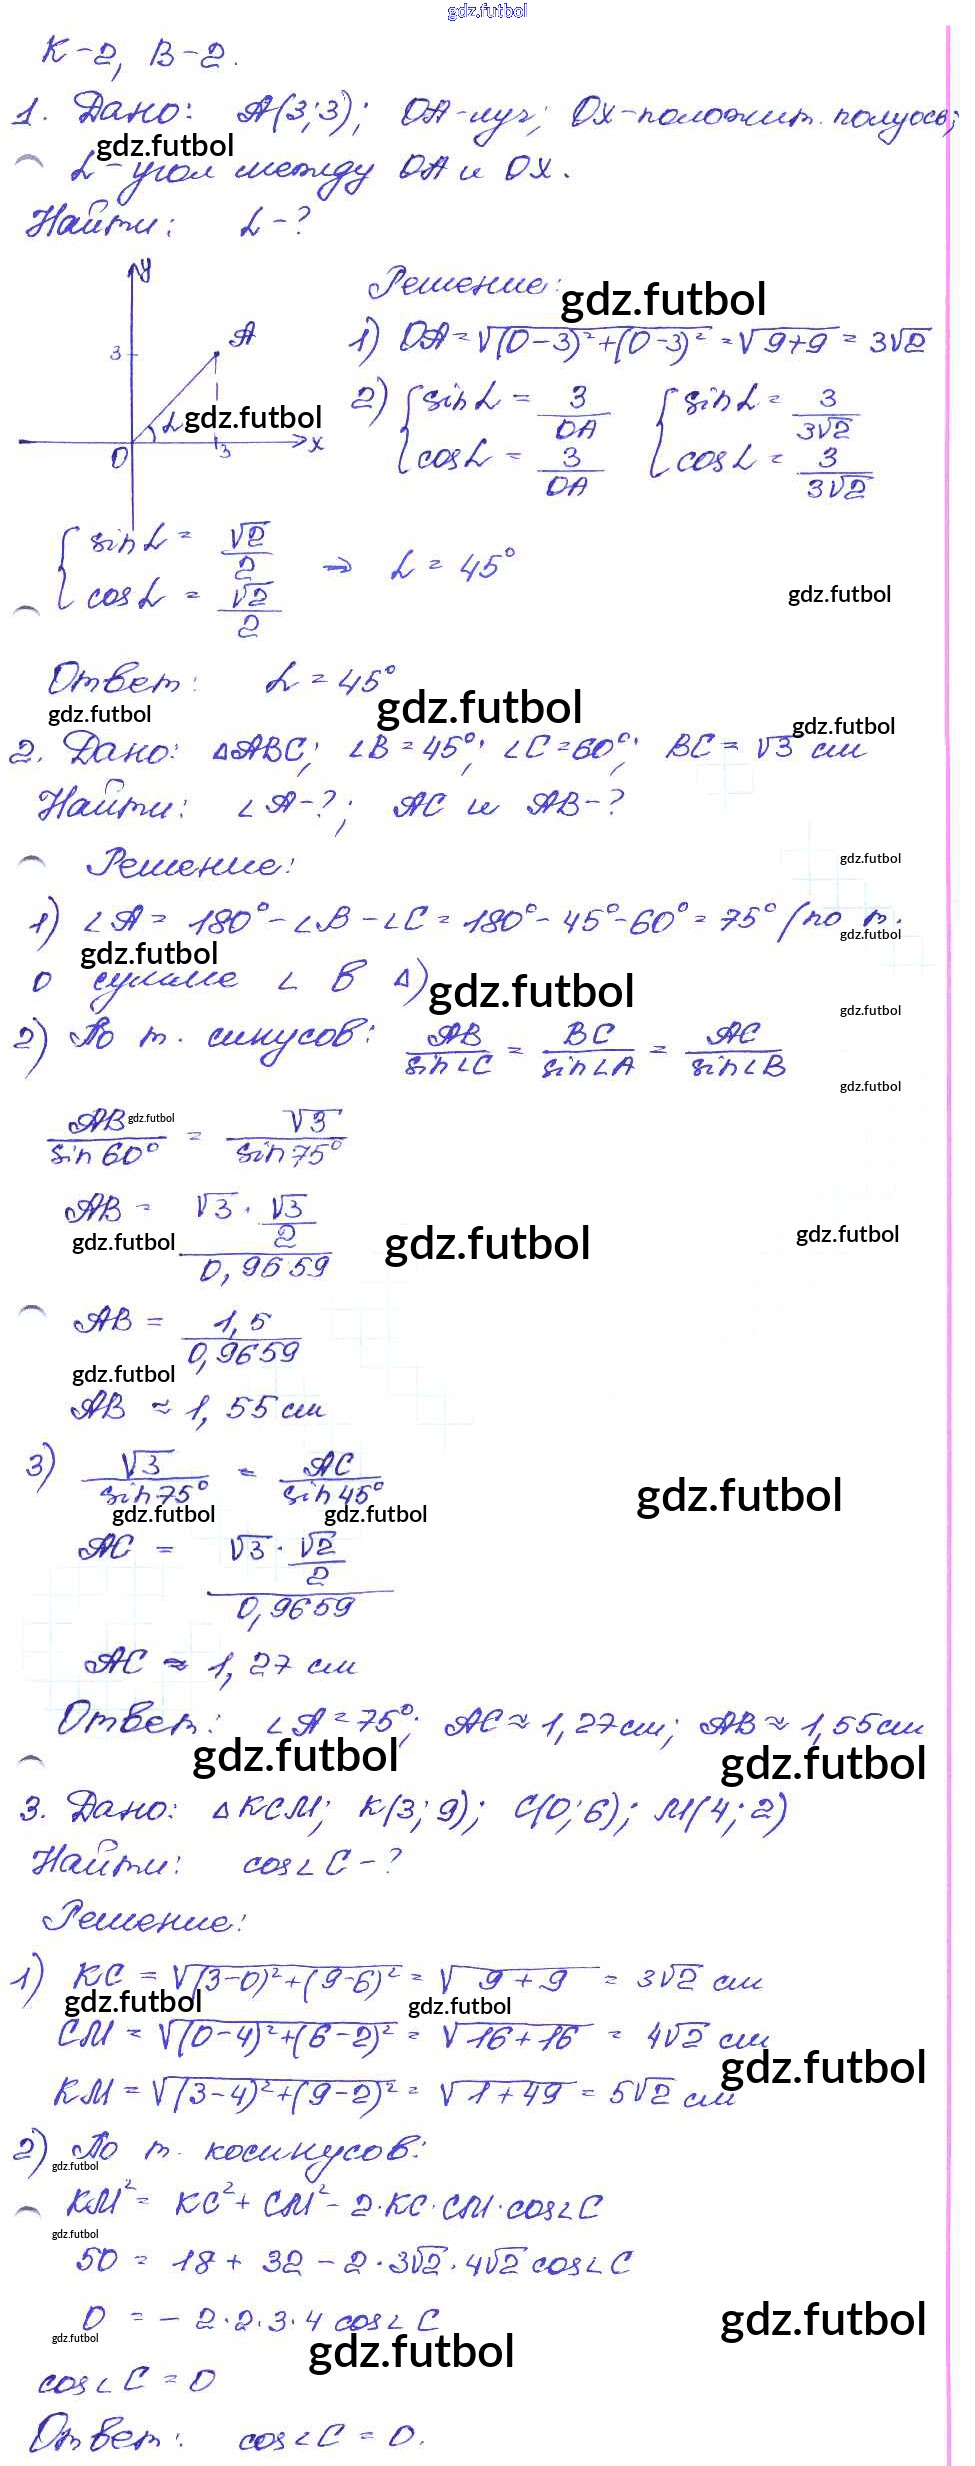 gdz.futbol
К-2, В-2.
1. Дано: A(3;3); OA-луч; OX-положит. полуось;
gdz.futbol
α-угол между OA и OX.
Найти: α-?
y
Решение:
gdz.futbol
A
3
1) OA = √(0-3)²+(0-3)² = √9+9 = 3√2
α
gdz.futbol
2) { sin α = 3/OA { sin α = 3/3√2
cos α = 3/OA cos α = 3/3√2
O 3 x
{ sin α = √2/2
cos α = √2/2 ⇒ α = 45°
gdz.futbol
Ответ: α = 45°
gdz.futbol gdz.futbol gdz.futbol
2. Дано: ΔABC; ∠B = 45°; ∠C = 60°; BC = √3 см
Найти: ∠A-?; AC и AB-?
Решение:
gdz.futbol
1) ∠A = 180° - ∠B - ∠C = 180° - 45° - 60° = 75° (по т.
gdz.futbol gdz.futbol
о сумме ∠ в Δ)
gdz.futbol gdz.futbol
2) По т. синусов: AB/sin∠C = BC/sin∠A = AC/sin∠B
gdz.futbol
AB/sin 60° = √3/sin 75°
gdz.futbol
AB = √3 · √3/2 / 0,9659
gdz.futbol gdz.futbol gdz.futbol
AB = 1,5/0,9659
gdz.futbol
AB ≈ 1,55 см
3) √3/sin 75° = AC/sin 45°
gdz.futbol gdz.futbol gdz.futbol
AC = √3 · √2/2 / 0,9659
AC ≈ 1,27 см
Ответ: ∠A = 75°; AC ≈ 1,27 см; AB ≈ 1,55 см
gdz.futbol gdz.futbol
3. Дано: ΔKCM; K(3;9); C(0;6); M(4;2)
Найти: cos∠C-?
Решение:
1) KC = √(3-0)²+(9-6)² = √9+9 = 3√2 см
gdz.futbol gdz.futbol
CM = √(0-4)²+(6-2)² = √16+16 = 4√2 см
gdz.futbol
KM = √(3-4)²+(9-2)² = √1+49 = 5√2 см
2) По т. косинусов:
gdz.futbol
KM² = KC² + CM² - 2·KC·CM·cos∠C
gdz.futbol
50 = 18 + 32 - 2·3√2·4√2 cos∠C
0 = -2·2·3·4 cos∠C
gdz.futbol gdz.futbol gdz.futbol
cos∠C = 0
Ответ: cos∠C = 0.